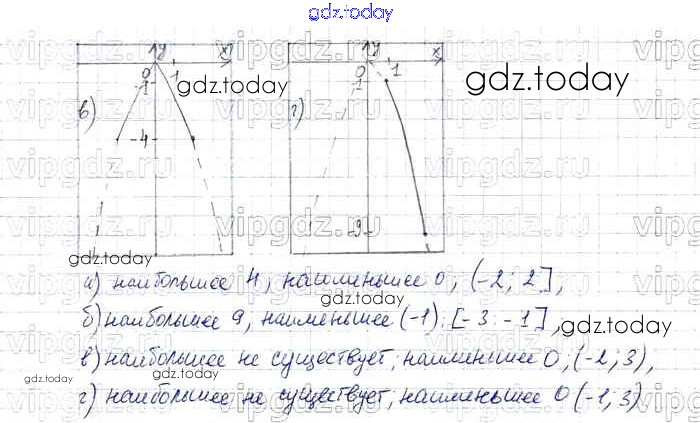 gdz.today
vipgdz.ru vipgdz.ru vipgdz.ru
y x y x
0 1 0 1
-1 -1
gdz.today gdz.today
в) г)
-4
vipgdz.ru vipgdz.ru vipgdz.ru
-9
gdz.today
а) наибольшее 4, наименьшее 0, (-2; 2],
gdz.today
б) наибольшее 9, наименьшее (-1). [-3 -1],
в) наибольшее не существует, наименьшее 0, (-2; 3),
gdz.today gdz.today
г) наибольшее не существует, наименьшее 0 (-1; 3)